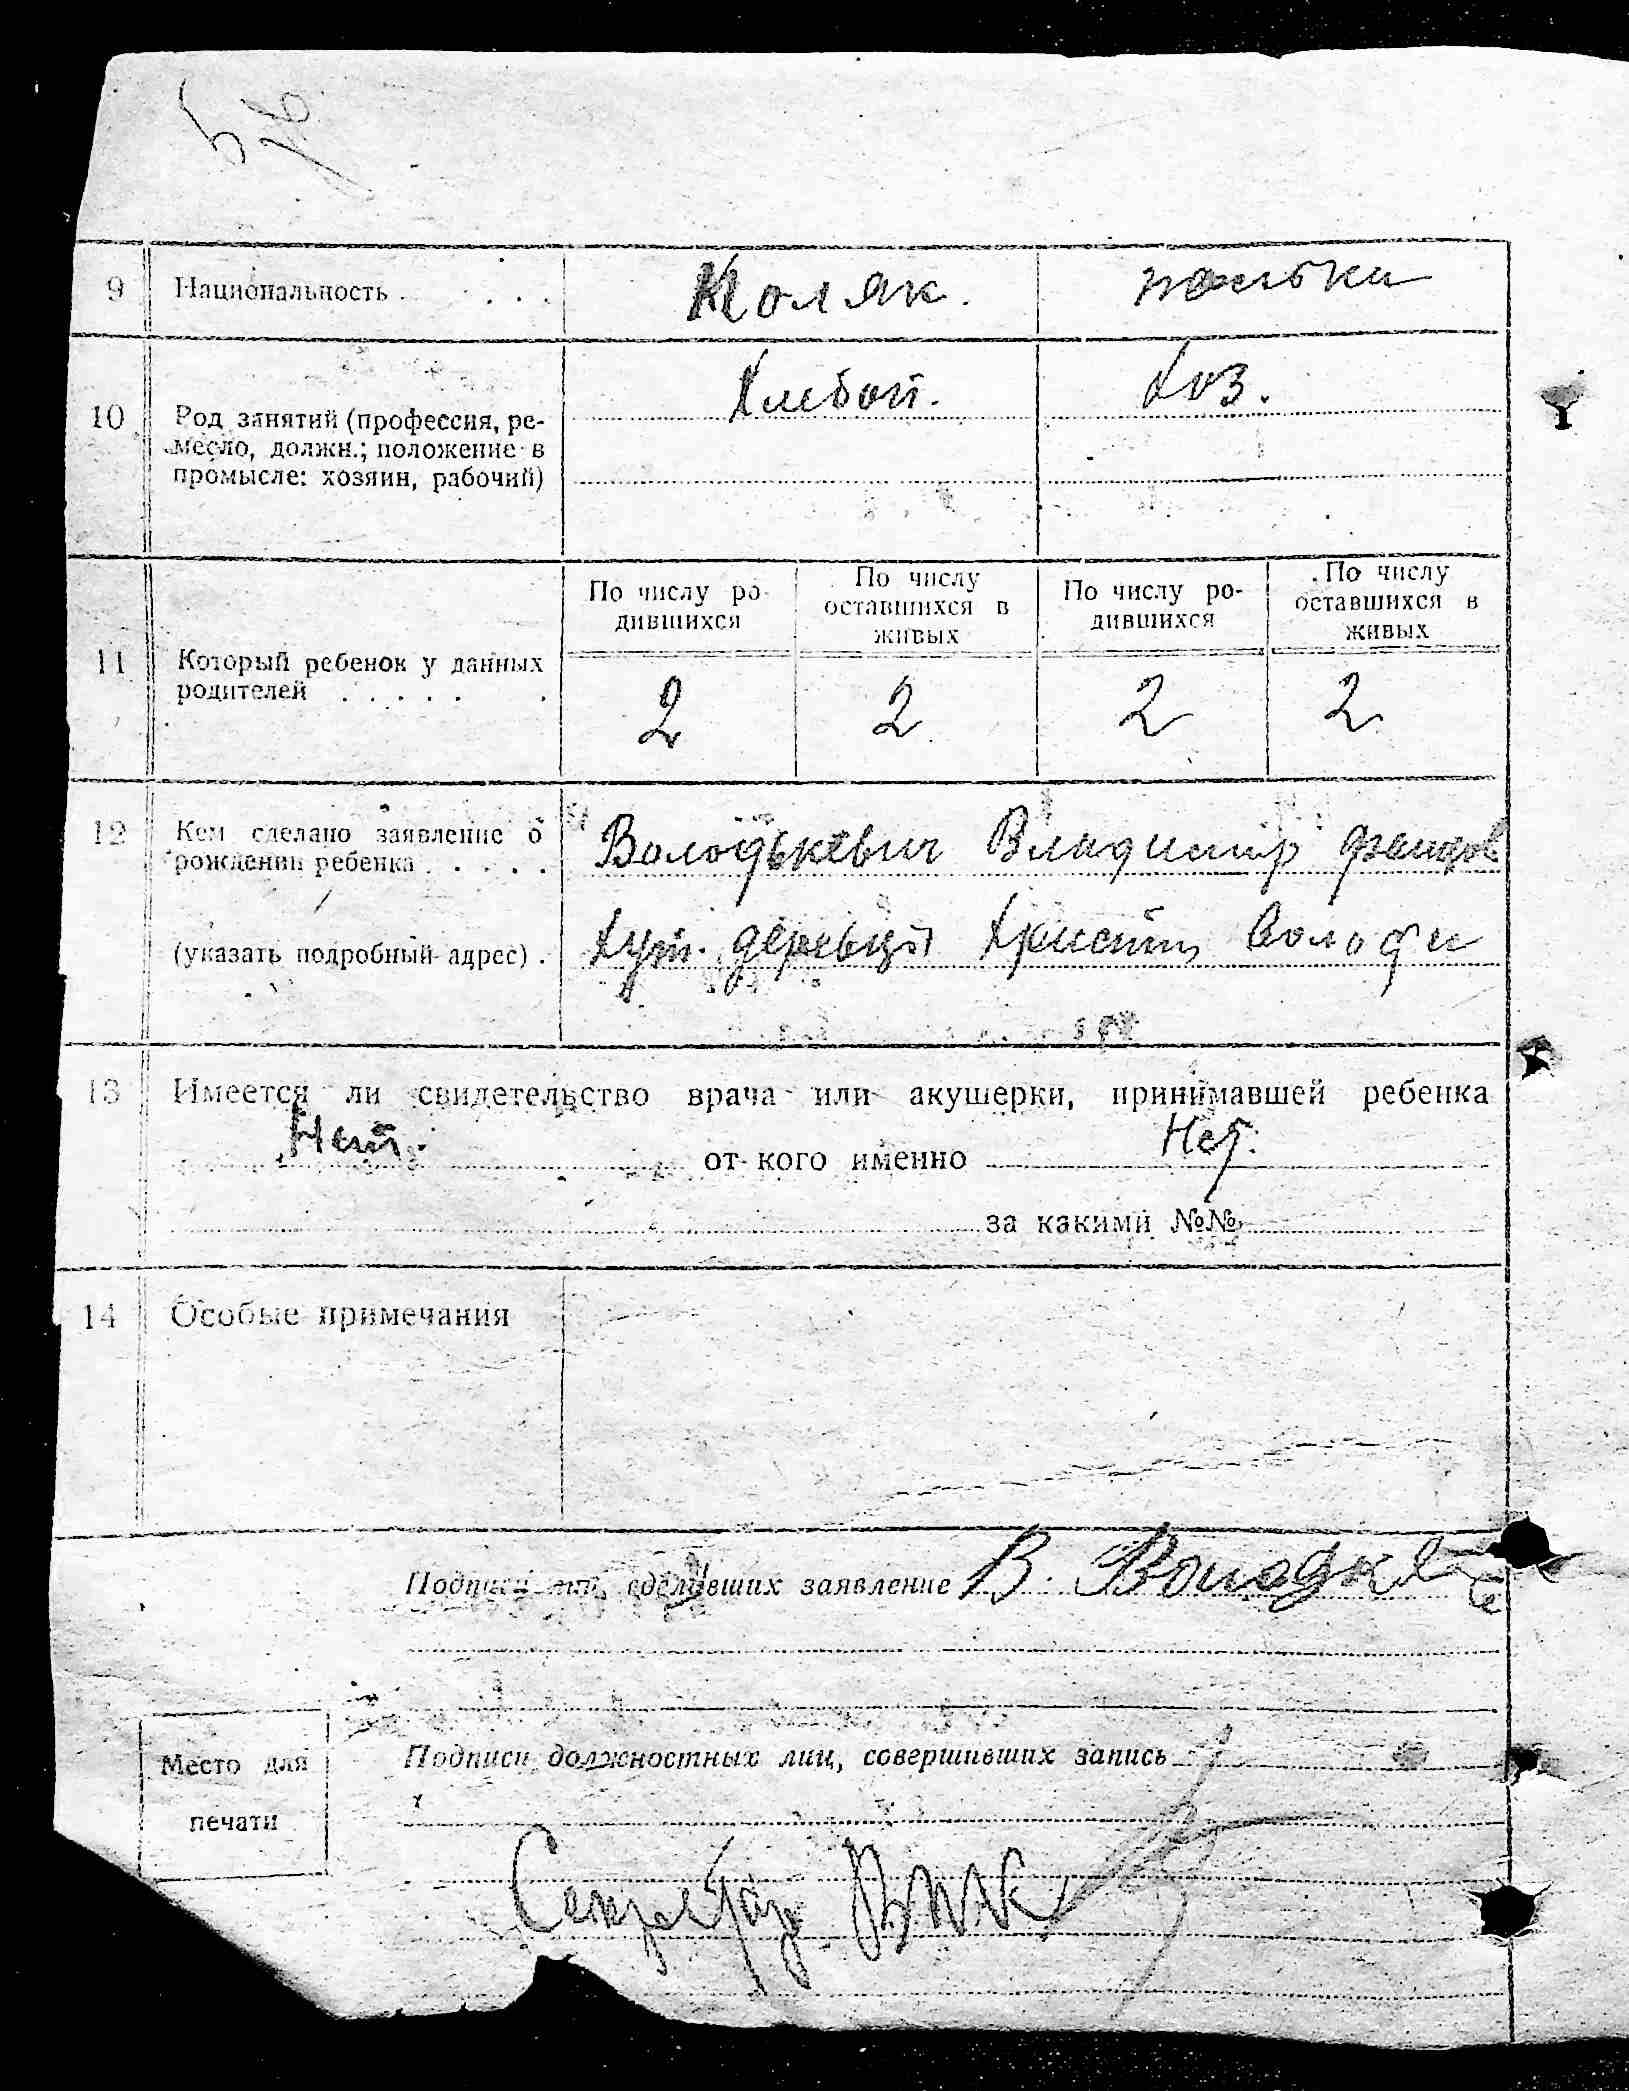 9 Национальность . . . . Поляк. полька
10 Род занятий (профессия, ре-
месло, должн.; положение в
промысле: хозяин, рабочий)
Хлебоп. Хоз.
11 Который ребенок у данных
родителей . . . . . .
По числу ро-
дившихся
По числу
оставшихся в
живых
По числу ро-
дившихся
По числу
оставшихся в
живых
2 2 2 2
12 Кем сделано заявление о
рождении ребенка . . . . .
Володькевич Владимир
(указать подробный адрес) .
Хут.
13 Имеется ли свидетельство врача или акушерки, принимавшей ребенка
Нет. от кого именно Нет.
за какими №№
14 Особые примечания
Подписи лиц, сделавших заявление В.
Место для
печати
Подписи должностных лиц, совершивших запись
Секретарь